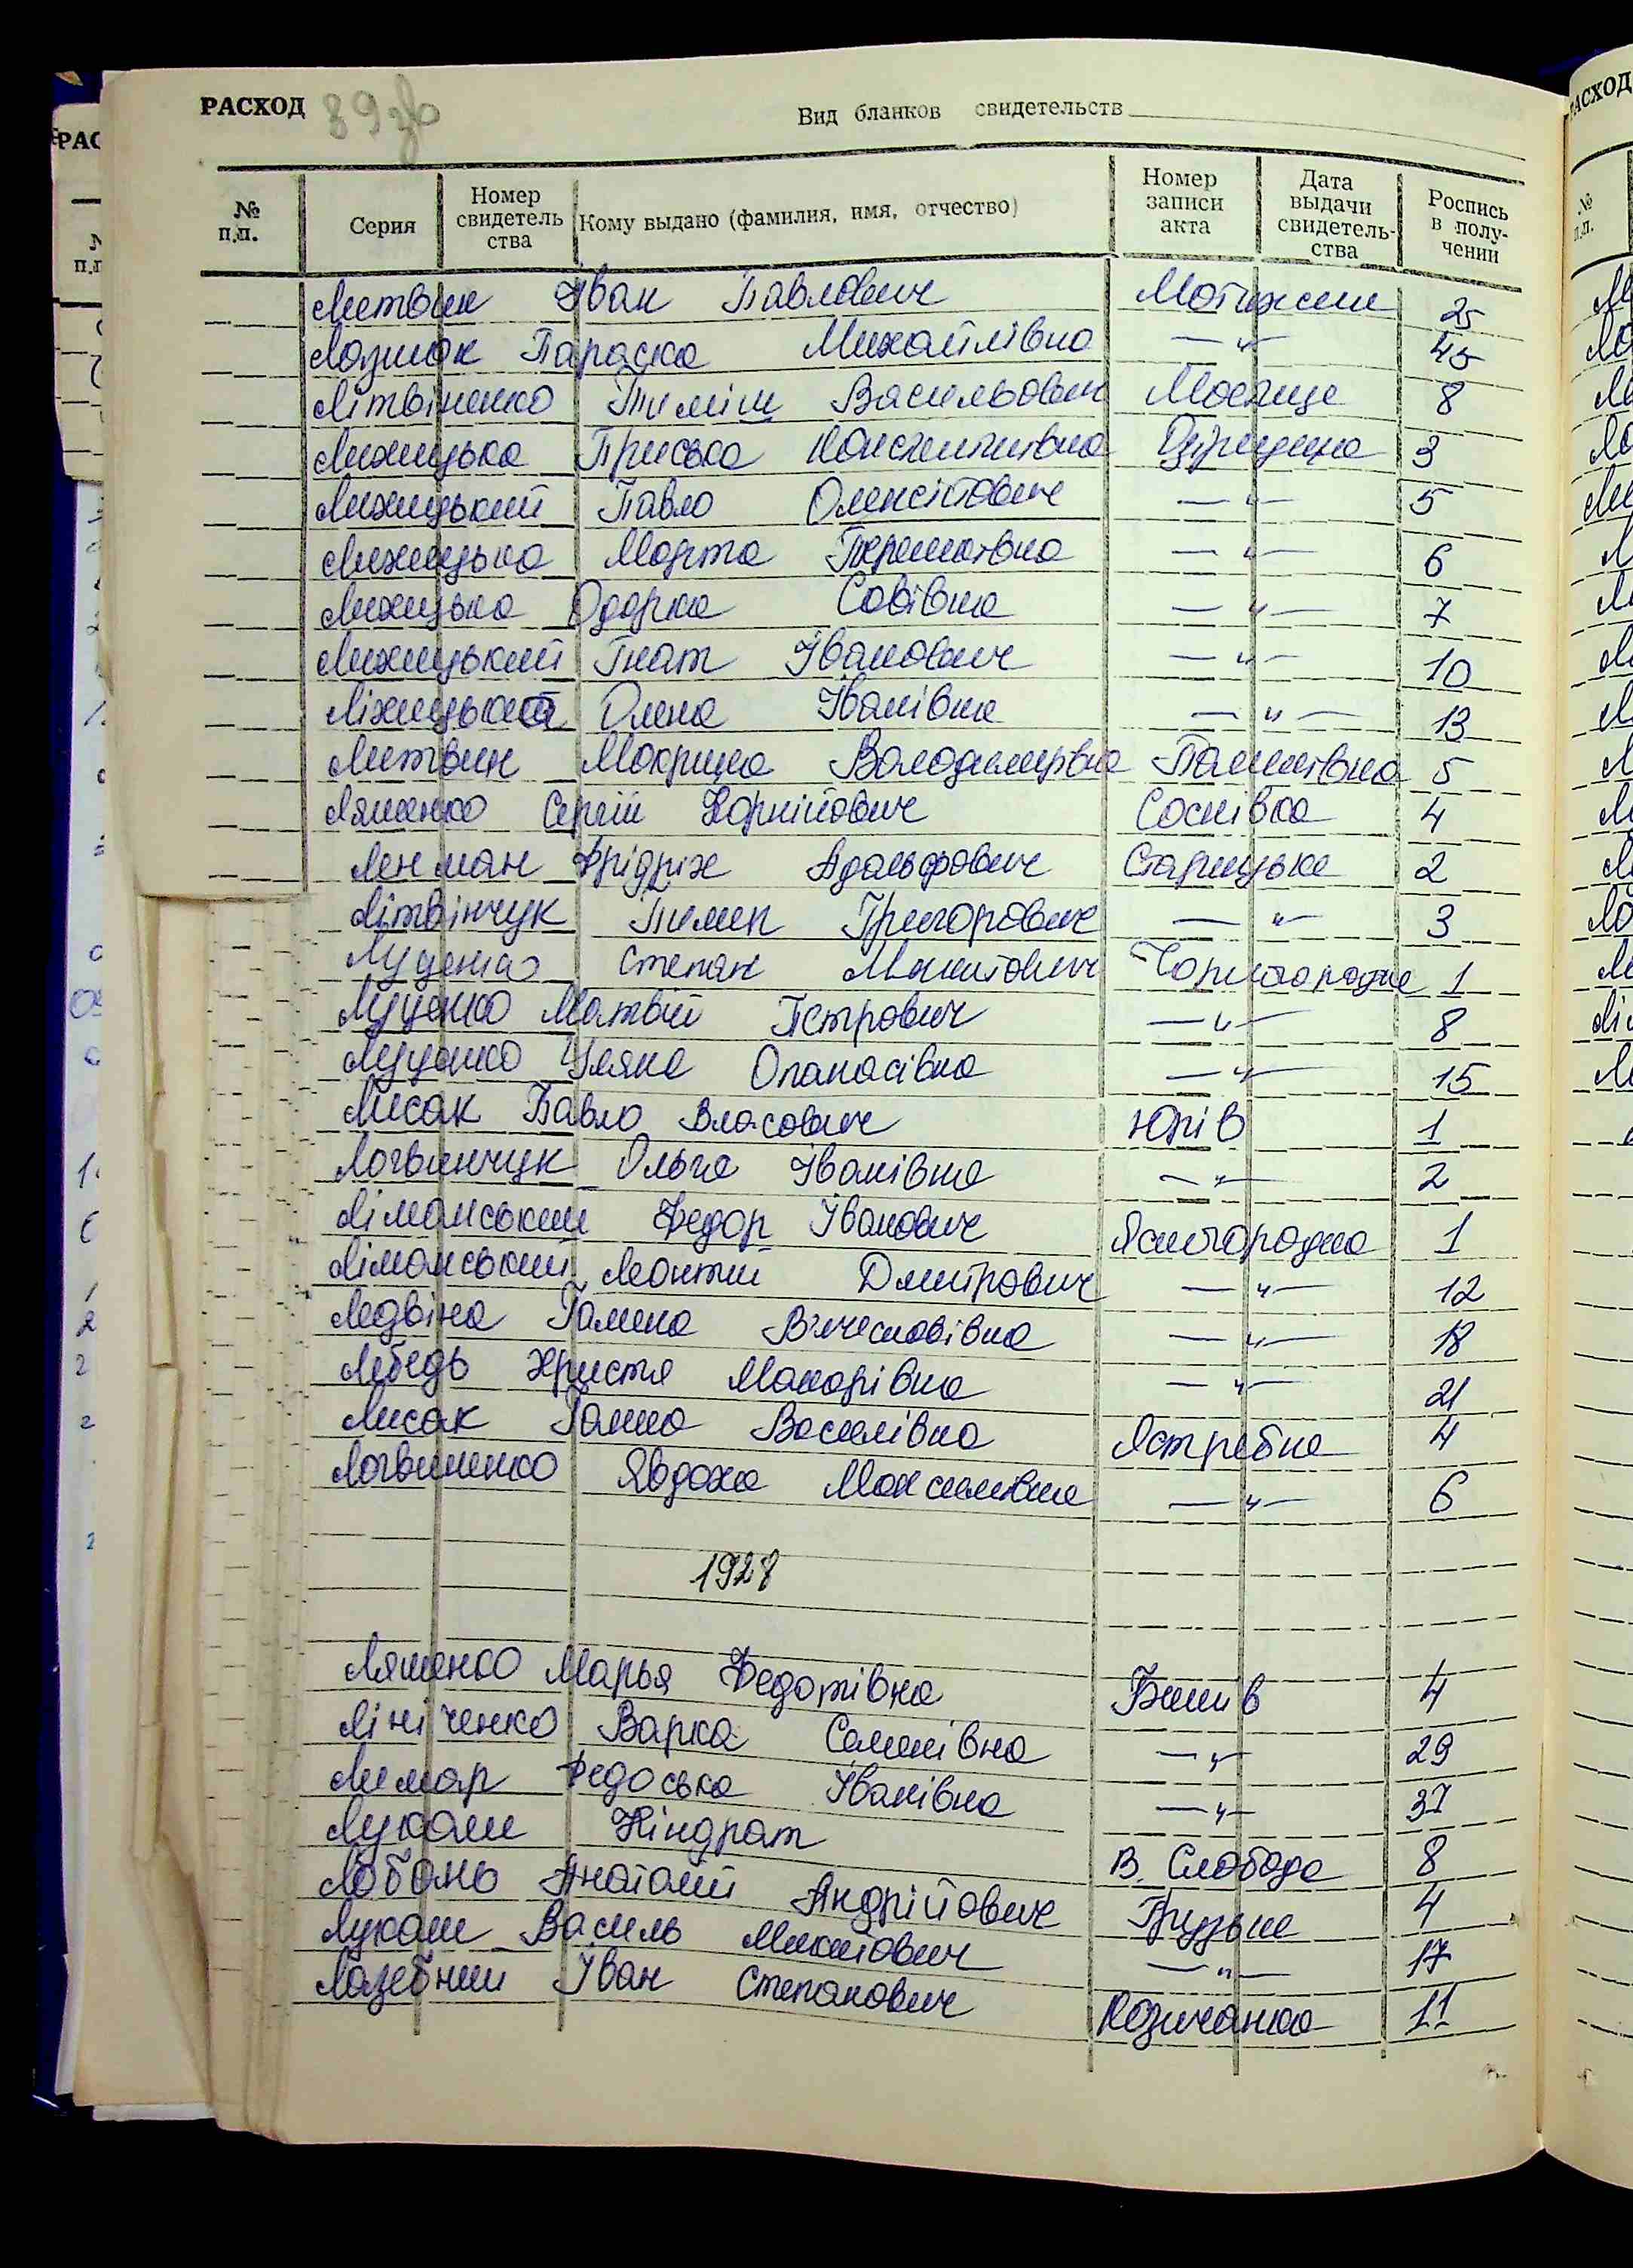 РАСХОД 89зв Вид бланков свидетельств
№ п.п. Серия Номер свидетельства Кому выдано (фамилия, имя, отчество) Номер записи акта Дата выдачи свидетельства Роспись в получении
Литвин Іван Павлович Мотижин 25
Лозинюк Параска Михайлівна —"— 45
Літвіненко Василькович 8
Лихицька Приська Констянтинівна 3
Лихицький Павло Олексійович —"— 5
Лихицька Марта —"— 6
Лихицька Одарка Савівна —"— 7
Лихицький Гнат Іванович —"— 10
Ліхицька Олена Іванівна —"— 13
Литвин Мокрина Володимирівна 5
Ляшенко Сергій Корнійович Соснівка 4
Ленман Фрідріх Адальфович Старицьке 2
Літвінчук Тимен Григорович —"— 3
Луценко Степан Микитович 1
Луценко Матвій Петрович —"— 8
Луценко Уляна Опанасівна —"— 15
Лисак Павло Власович Юрів 1
Логвинчук Ольга Іванівна —"— 2
Ліманський Федор Іванович Ясногородка 1
Ліманський Леонтій Дмитрович —"— 12
Ледвіна Галина В'ячеславівна —"— 18
Лебедь Христя Макарівна —"— 21
Лисак Ганна Василівна Ястребна 4
Логвиненко Явдоха Максимівна —"— 6
1928
Ляшенко Марья Федотівна Бишів 4
Лініченко Варка Семенівна —"— 29
Лимар Федоська Іванівна —"— 37
Лукаш Кіндрат В. Слобода 8
Лобань Анатолій Андрійович Грузьке 4
Лукаш Василь Микитович —"— 17
Лазебний Іван Степанович Козичанка 11
РАСХОД
№ п.п.